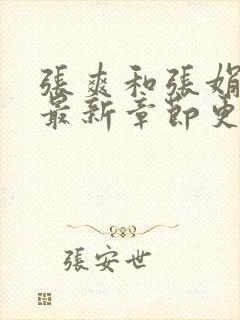 張爽和張娟
最新章節更
張安世